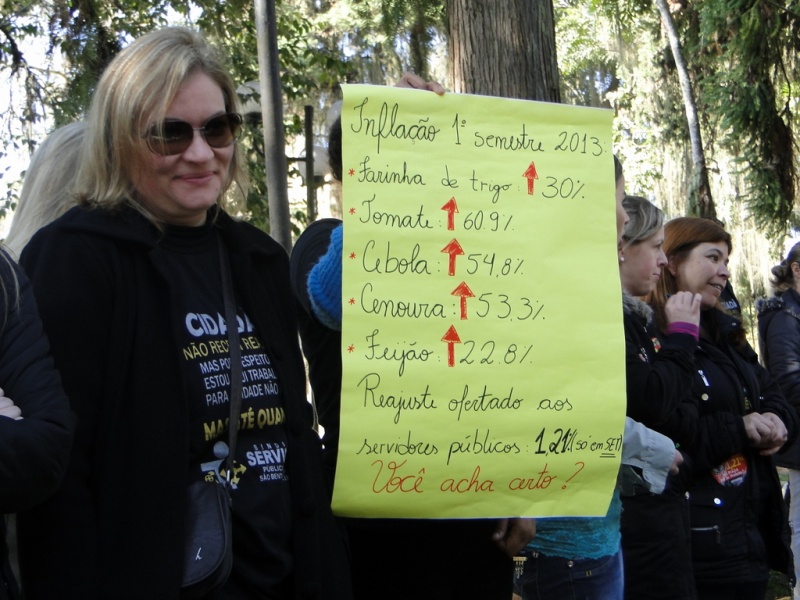 Inflação 1º semestre 2013.
* Farinha de trigo: 30%
* Tomate: 60.9%
* Cebola: 54,8%
* Cenoura: 53.3%
* Feijão: 22.8%
Reajuste ofertado aos
servidores públicos: 1,21% (só em SET)
Você acha certo?
CIDADÃ
NÃO RECEBI REA
MAS POR RESPEITO
ESTOU AQUI TRABAL
PARA A CIDADE NÃO
MAS ATÉ QUAN
SERVI
PÚBLIC
SÃO BENT
1,21%